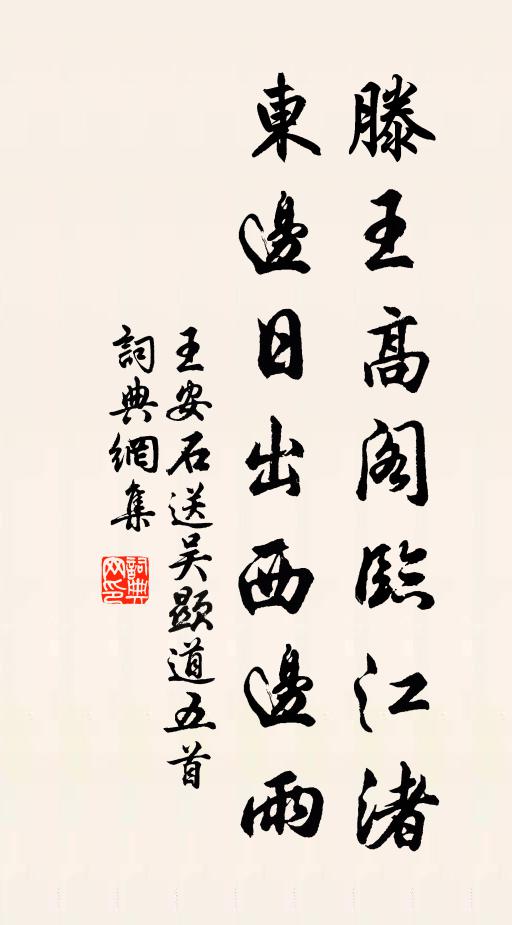 滕王高阁臨江渚
東邊日出西邊雨
王安石送吴顯道五首
詞典網集
詞典網印